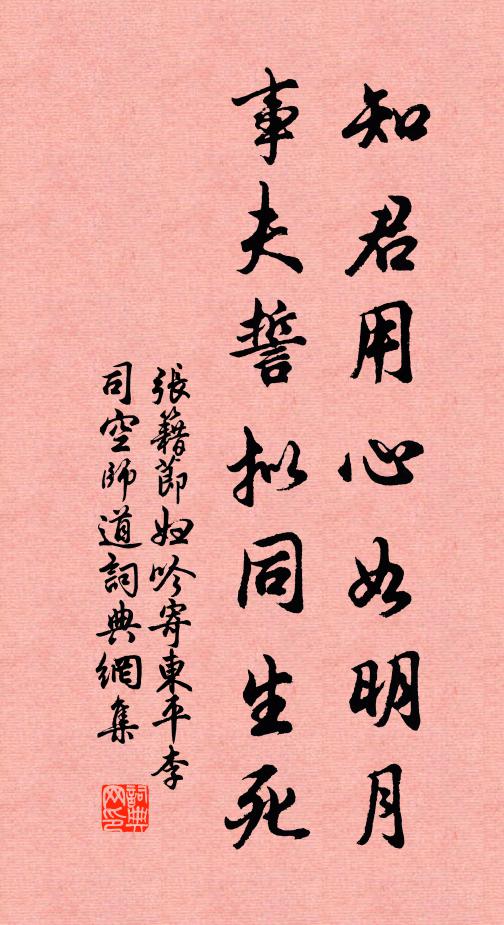 知君用心如明月
事夫誓擬同生死
張籍節婦吟寄東平李
司空師道詞典網集
詞典
网印